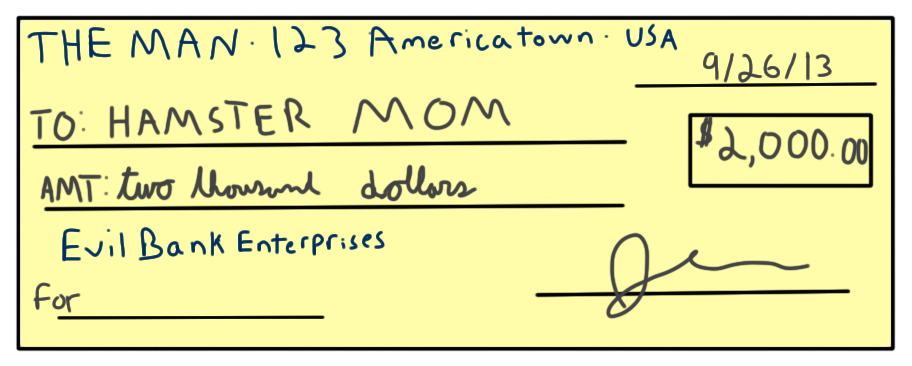 THE MAN · 123 Americatown · USA
9/26/13
TO: HAMSTER MOM
$2,000.00
AMT: two thousand dollars
Evil Bank Enterprises
For